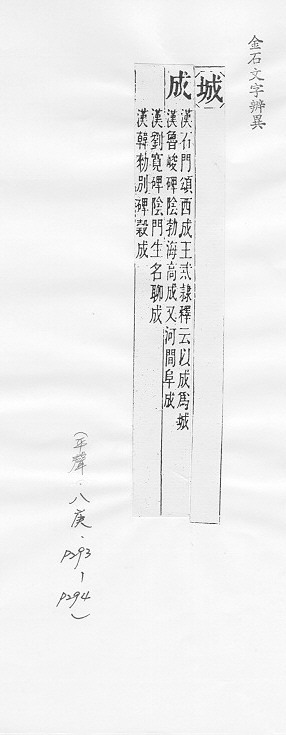 金石文字辨異
城
成
漢石門頌西成王戎隸釋云以成爲城
漢魯峻碑陰勃海高成又河間阜成
漢劉寬碑陰門生名聊成
漢韓勑別碑穀成
(平聲·八庚·P293-P294)